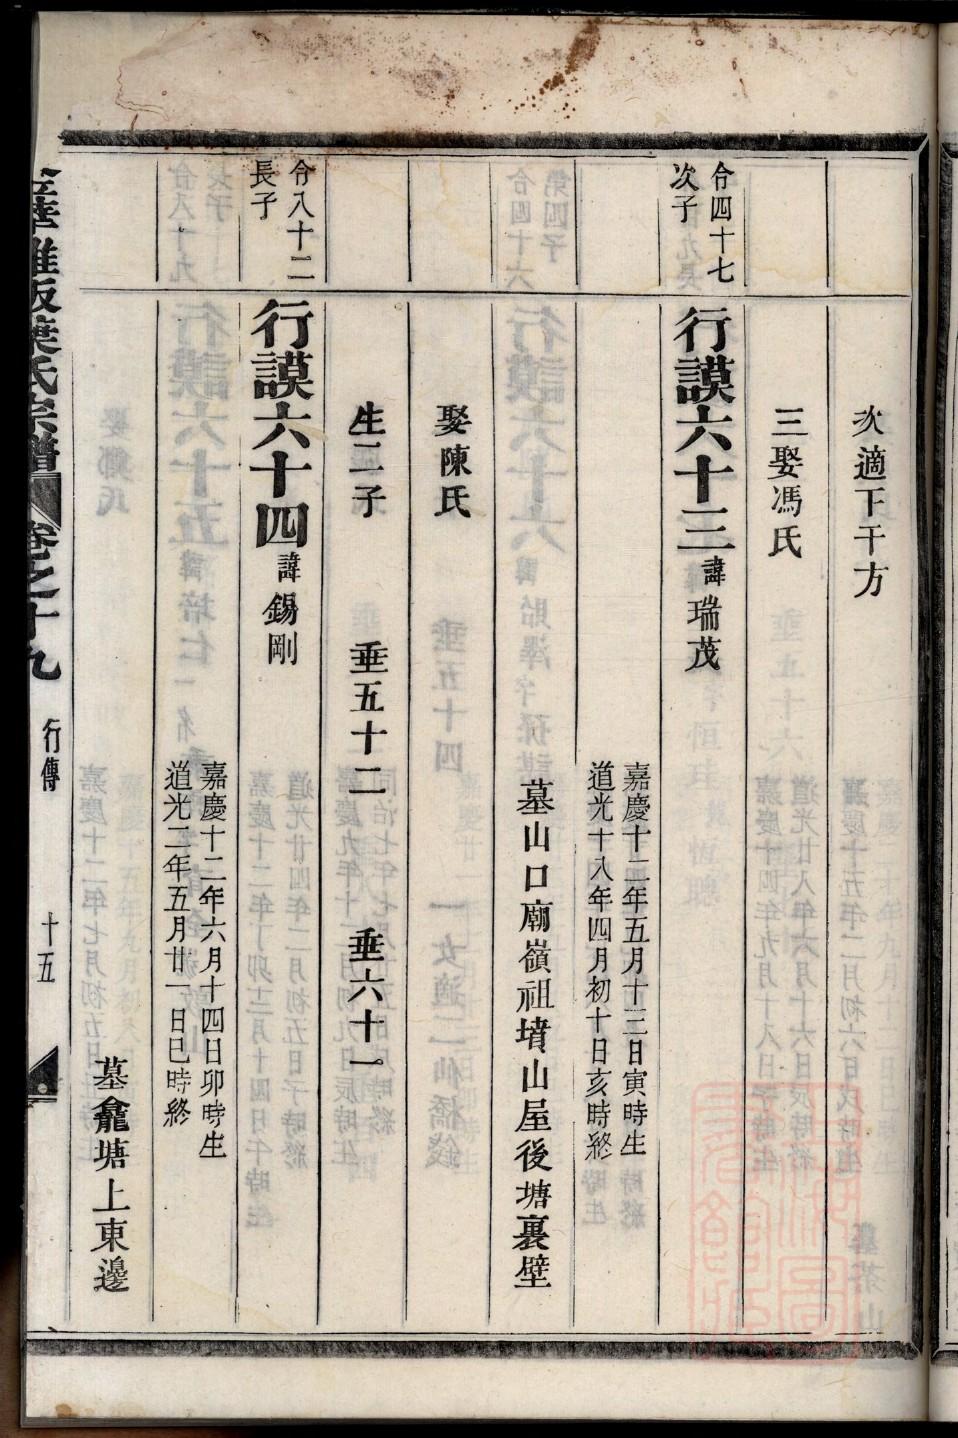 次適下干方
三娶馮氏
令四十七
次子
行謨六十三諱瑞茂
嘉慶十二年五月十三日寅時生
道光十八年四月初十日亥時終
墓山口廟嶺祖墳山屋後塘裏壁
娶陳氏
生二子 垂五十二 垂六十一
令八十二
長子
行謨六十四諱錫剛
嘉慶十二年六月十四日卯時生
道光二年五月廿一日巳時終
墓龕塘上東邊
葉氏宗譜 卷之十九 行傳 十五